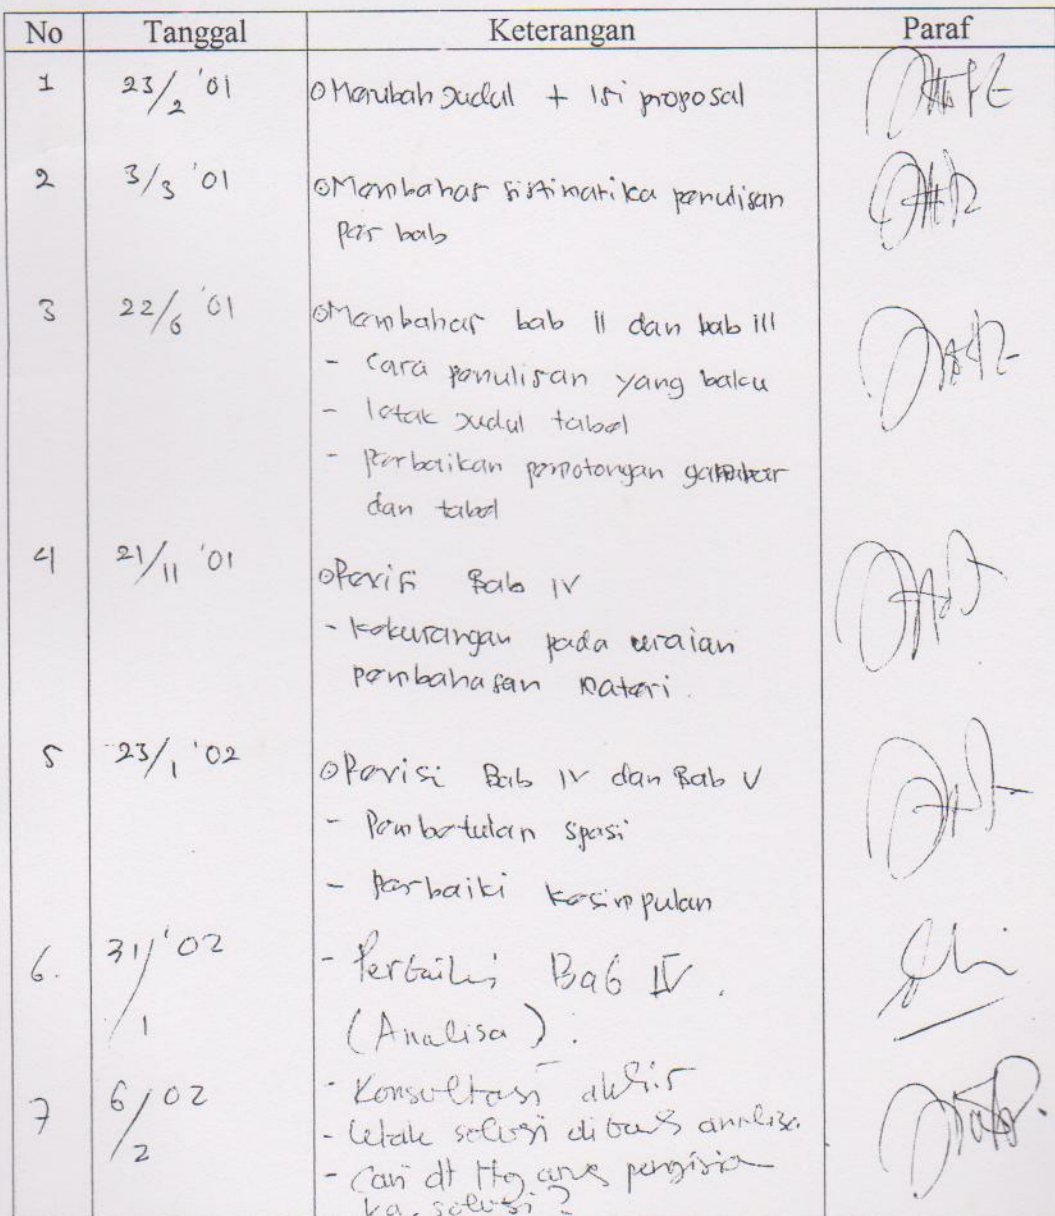 No Tanggal Keterangan Paraf
1 23/2 '01 Merubah Judul + Isi proposal
2 3/3 '01 Membahas sistimatika penulisan
per bab
3 22/6 '01 Membahas bab II dan bab III
- Cara penulisan yang baku
- letak Judul tabel
- perbaikan pemotongan gambar
dan tabel
4 21/11 '01 Revisi Bab IV
- Kekurangan pada uraian
pembahasan materi.
5 23/1 '02 Revisi Bab IV dan Bab V
- Pembetulan spasi
- perbaiki kesimpulan
6. 31/1 '02 - Perbaiki Bab IV.
(Analisa).
7 6/2 02 - Konsultasi akhir
- letak solusi di analisa.
- Cari dt pengisian
solusi?